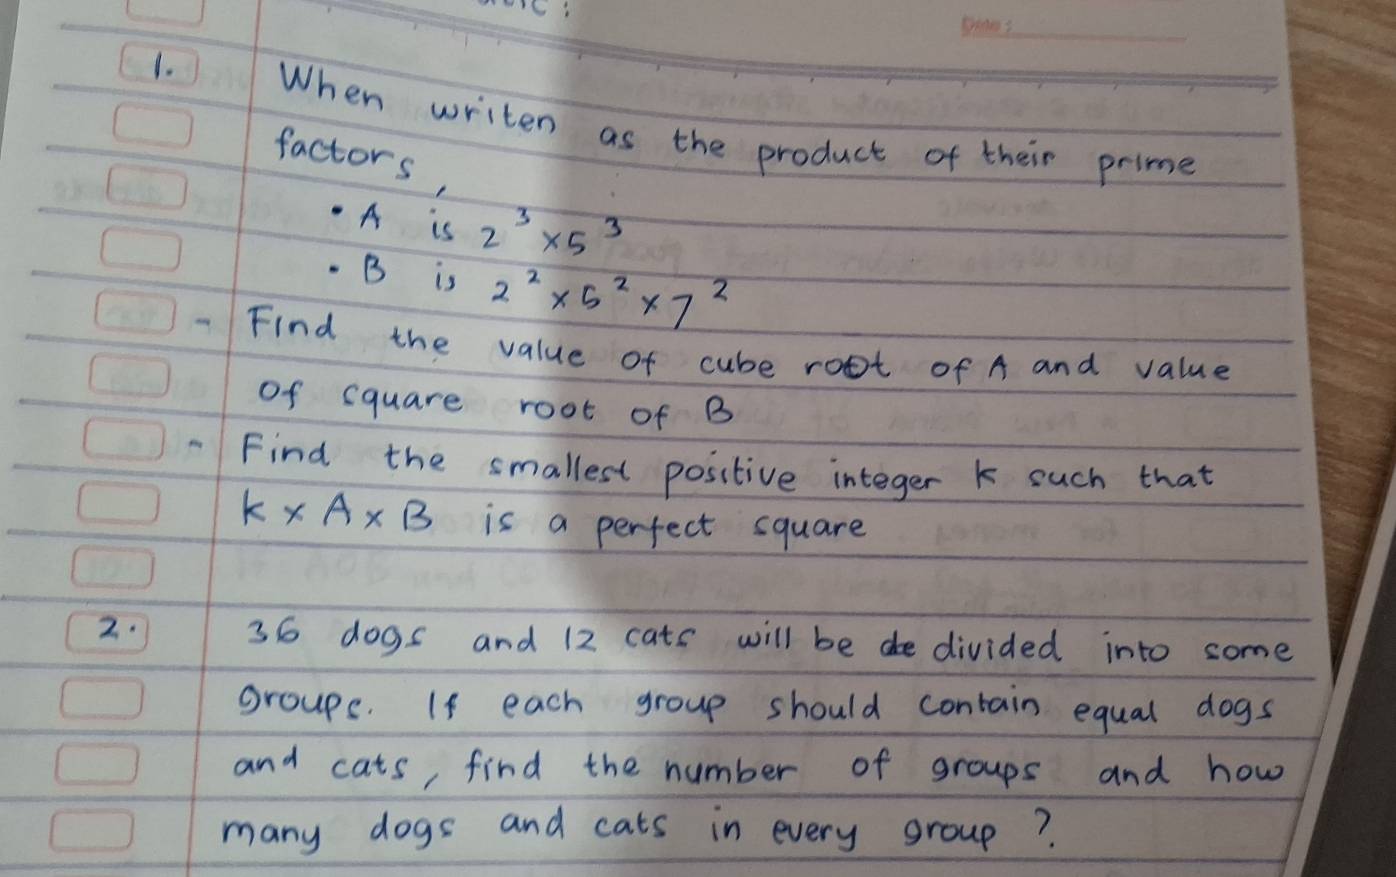 Date :
1. When writen as the product of their prime
factors,
• A is 2³ × 5³
• B is 2² × 5² × 7²
- Find the value of cube root of A and value
of square root of B
- Find the smallest positive integer k such that
k × A × B is a perfect square
2. 36 dogs and 12 cats will be de divided into some
groups. If each group should contain equal dogs
and cats, find the number of groups and how
many dogs and cats in every group ?